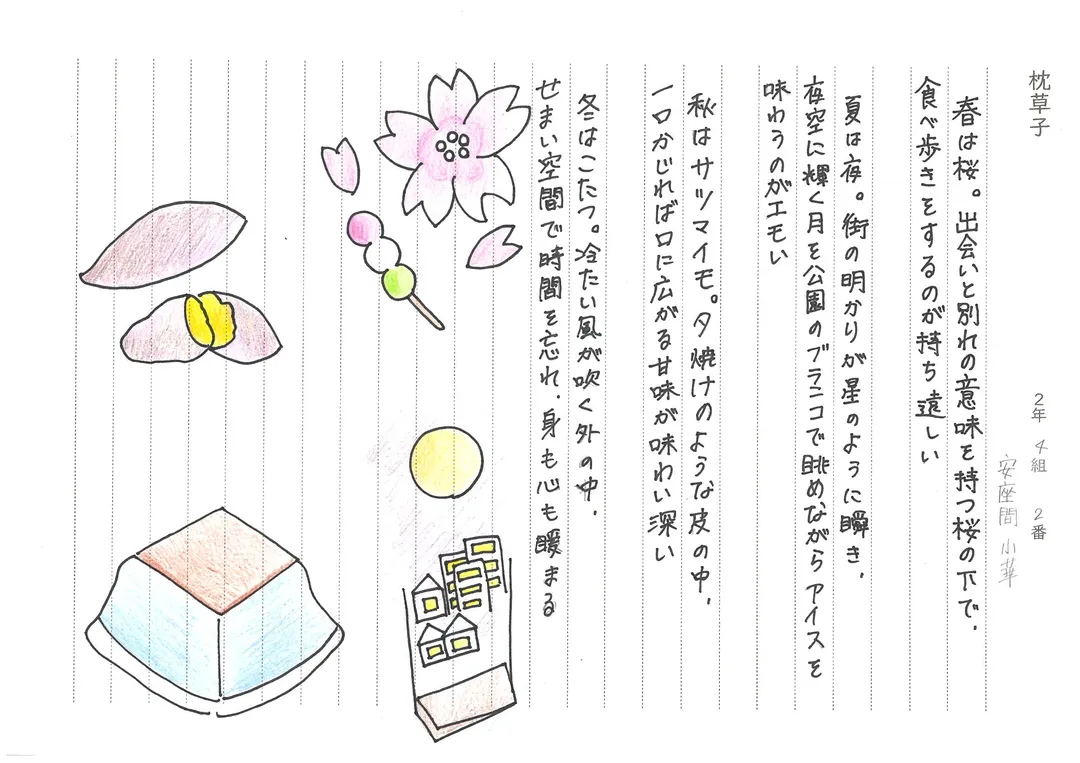 枕草子
2年 4組 2番
安座間 小華
春は桜。出会いと別れの意味を持つ桜の下で、
食べ歩きをするのが待ち遠しい
夏は夜。街の明かりが星のように瞬き、
夜空に輝く月を公園のブランコで眺めながらアイスを
味わうのがエモい
秋はサツマイモ。夕焼けのような皮の中、
一口かじれば口に広がる甘味が味わい深い
冬はこたつ。冷たい風が吹く外の中、
せまい空間で時間を忘れ、身も心も暖まる